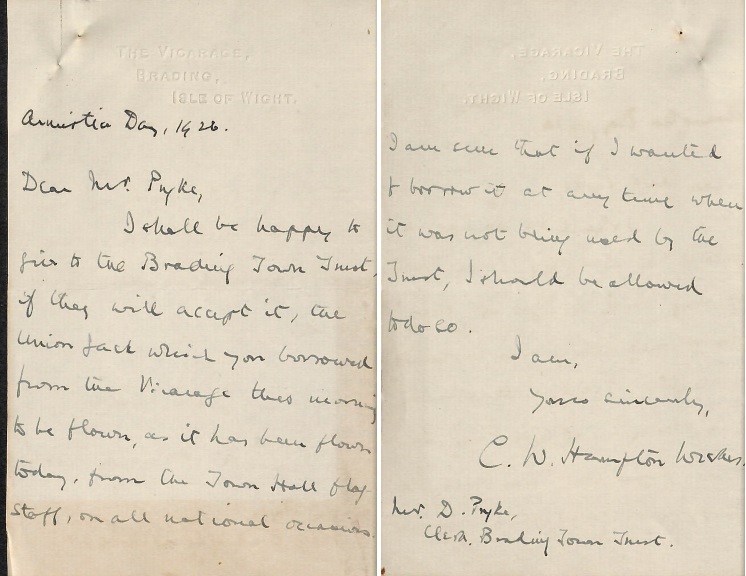 THE VICARAGE,
BRADING,
ISLE OF WIGHT.
Armistice Day, 1926.
Dear Mr. Pryke,
I shall be happy to
give to the Brading Town Trust,
if they will accept it, the
Union Jack which you borrowed
from the Vicarage this morning
to be flown, as it has been flown
today, from the Town Hall flag
staff, on all national occasions.
I am sure that if I wanted
to borrow it at any time when
it was not being used by the
Trust, I should be allowed
to do so.
I am,
Yours sincerely,
C. W. Hampton
Mr. D. Pryke,
Clerk, Brading Town Trust.